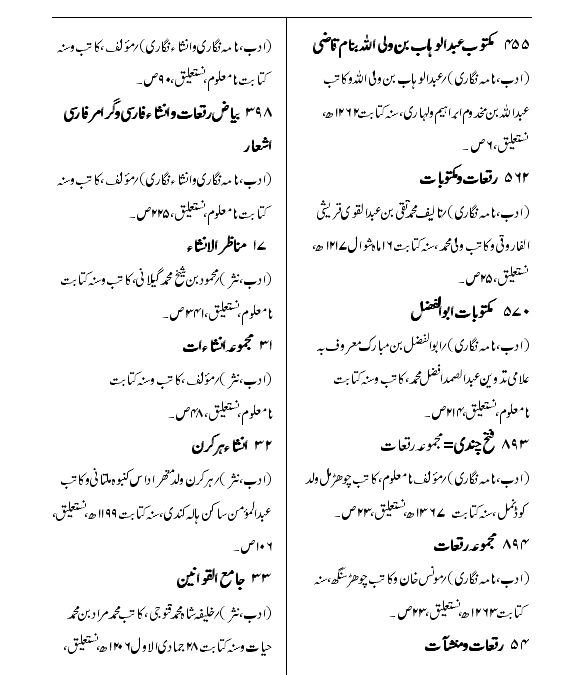 ۴۵۵ مکتوب عبدالوہاب بن ولی اللہ بنام قاضی
(ادب، نامہ نگاری)/عبدالوہاب بن ولی اللہ و کاتب
عبداللہ بن مخدوم ابراہیم ولہاری، سنہ کتابت ۱۲۶۲ھ،
نستعلیق، ۶ص۔
۵۶۲ رقعات و مکتوبات
(ادب، نامہ نگاری)/تالیف محمد تقی بن عبدالقوی قریشی
الفاروقی و کاتب ولی محمد، سنہ کتابت ۱۶ ماہ شوال ۱۲۱۷ھ،
نستعلیق، ۲۵ص۔
۵۷۰ مکتوبات ابوالفضل
(ادب، نامہ نگاری)/ابوالفضل بن مبارک معروف بہ
علامی تدوین عبدالصمد افضل محمد، کاتب و سنہ کتابت
نامعلوم، نستعلیق، ۲۱۴ص۔
۸۹۳ فتح چندی = مجموعہ رقعات
(ادب، نامہ نگاری)/مؤلف نامعلوم، کاتب چوھڑمل ولد
کوڈنمل، سنہ کتابت ۱۳۶۷ھ، نستعلیق، ۲۳ص۔
۸۹۴ مجموعہ رقعات
(ادب، نامہ نگاری)/مونس خان و کاتب چوھڑ سنگھ، سنہ
کتابت ۱۲۶۳ھ، نستعلیق، ۲۳ص۔
۵۴ رقعات و منشآت
(ادب، نامہ نگاری و انشاء نگاری)/مؤلف، کاتب و سنہ
کتابت نامعلوم، نستعلیق، ۹۰ص۔
۳۹۸ بیاض رقعات و انشاء فارسی و گرامر فارسی
اشعار
(ادب، نامہ نگاری و انشاء نگاری)/مؤلف، کاتب و سنہ
کتابت نامعلوم، نستعلیق، ۲۲۵ص۔
۱۷ مناظر الانشاء
(ادب، نثر)/محمود بن شیخ محمد گیلانی، کاتب و سنہ کتابت
نامعلوم، نستعلیق، ۳۴۱ص۔
۳۱ مجموعہ انشاءات
(ادب، نثر)/مؤلف، کاتب و سنہ کتابت
نامعلوم، نستعلیق، ۴۸ص۔
۳۲ انشاء ہرکرن
(ادب، نثر)/ہرکرن ولد متھراداس کنبوہ ملتانی و کاتب
عبدالمؤمن ساکن ہالہ کندی، سنہ کتابت ۱۱۹۹ھ، نستعلیق،
۱۰۶ص۔
۳۳ جامع القوانین
(ادب، نثر)/خلیفہ شاہ محمد قنوجی، کاتب محمد مراد بن محمد
حیات و سنہ کتابت ۲۸ جمادی الاول ۱۲۰۶ھ، نستعلیق،